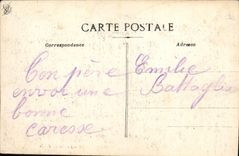 CARTE POSTALE
Correspondance
Adresse
Ton père
envoi une
bonne
caresse
Emilie
Battaglia